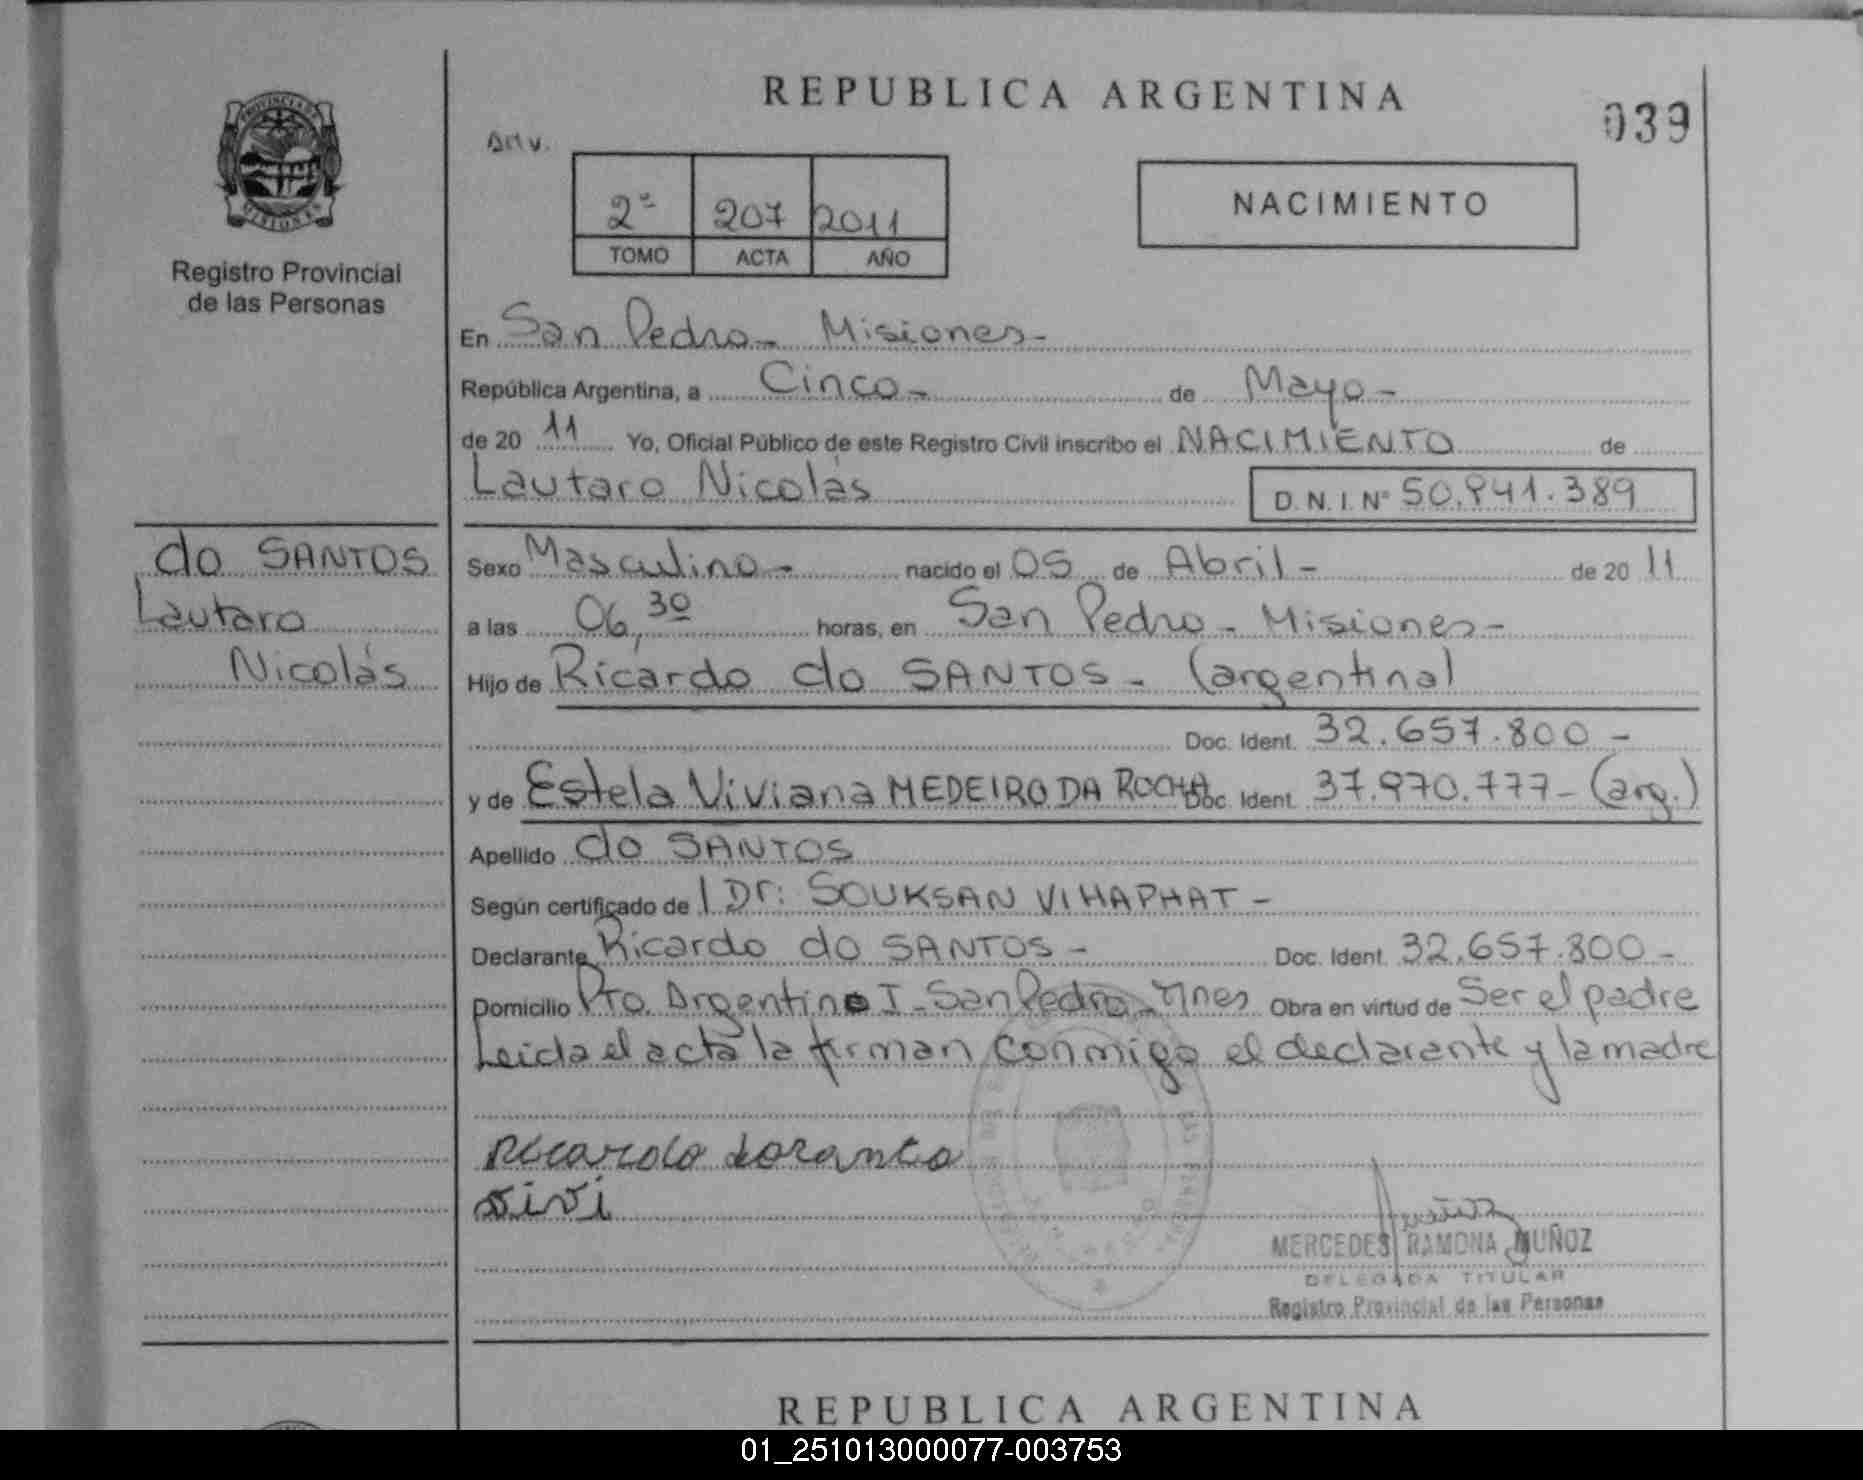 REPUBLICA ARGENTINA
039
2º 207 2011
TOMO ACTA AÑO
NACIMIENTO
PROVINCIA DE
MISIONES
Registro Provincial
de las Personas
En San Pedro - Misiones -
República Argentina, a Cinco - de Mayo -
de 20 11 Yo, Oficial Público de este Registro Civil inscribo el NACIMIENTO de
Lautaro Nicolás D.N.I. Nº 50.941.389
do SANTOS
Lautaro
Nicolás
Sexo Masculino - nacido el 05 de Abril - de 20 11
a las 06,30 horas, en San Pedro - Misiones -
Hijo de Ricardo do SANTOS - (argentina)
Doc. Ident. 32.657.800 -
y de Estela Viviana MEDEIRO DA ROCHA Doc. Ident. 37.970.777 - (arg.)
Apellido do SANTOS
Según certificado de l Dr: SOUKSAN VIHAPHAT -
Declarante Ricardo do SANTOS - Doc. Ident. 32.657.800 -
Domicilio Pto. Argentino I - San Pedro - Mnes Obra en virtud de Ser el padre
Leida el acta la firman conmigo el declarante y la madre
Ricardo dosanto
vivi
MERCEDES RAMONA MUÑOZ
DELEGADA TITULAR
Registro Provincial de las Personas
REPUBLICA ARGENTINA
01_251013000077-003753